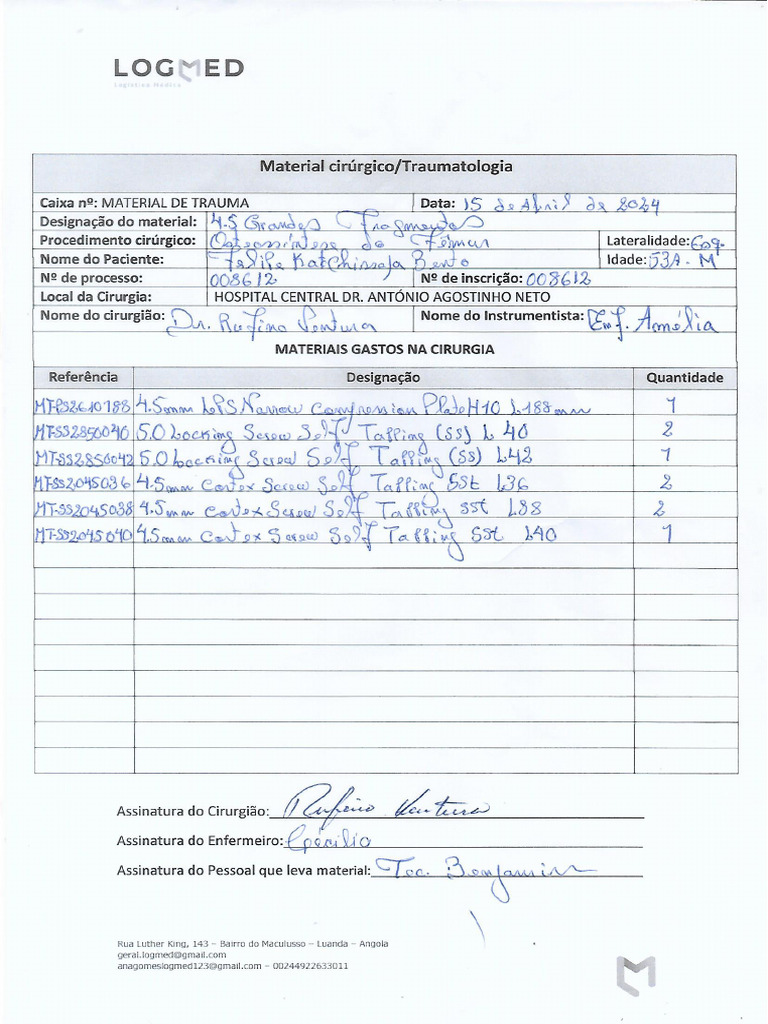 LOGMED
Logística Médica
Material cirúrgico/Traumatologia
Caixa nº: MATERIAL DE TRAUMA Data: 15 de Abril de 2024
Designação do material: 4.5 Grandes Fragmentos
Procedimento cirúrgico: Osteossíntese do Fêmur Lateralidade: Esq.
Nome do Paciente: Felipe Katchissapa Bento Idade: 53A - M
Nº de processo: 008612 Nº de inscrição: 008612
Local da Cirurgia: HOSPITAL CENTRAL DR. ANTÓNIO AGOSTINHO NETO
Nome do cirurgião: Dr. Rufino Ventura Nome do Instrumentista: Enf. Amélia
MATERIAIS GASTOS NA CIRURGIA
Referência Designação Quantidade
MT-PS2610188 4.5mm LPS Narrow Compression Plate H10 L188mm 1
MT-SS2850040 5.0 Locking Screw Self Tapping (SS) L 40 2
MT-SS2850042 5.0 Locking Screw Self Tapping (SS) L42 1
MT-SS2045036 4.5mm Cortex Screw Self Tapping SSt L36 2
MT-SS2045038 4.5mm Cortex Screw Self Tapping SSt L38 2
MT-SS2045040 4.5mm Cortex Screw Self Tapping SSt L40 1
Assinatura do Cirurgião: Rufino Ventura
Assinatura do Enfermeiro:
Assinatura do Pessoal que leva material: Tec. Benjamin
Rua Luther King, 143 – Bairro do Maculusso – Luanda – Angola
geral.logmed@gmail.com
anagomeslogmed123@gmail.com – 00244922633011